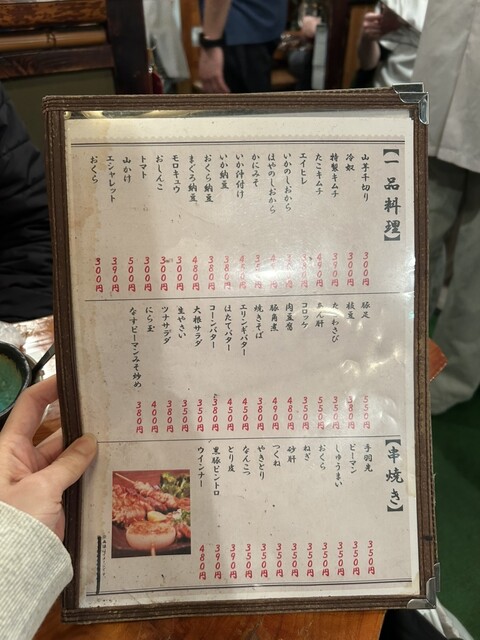 【一品料理】
山芋千切り 300円
冷奴 300円
特製キムチ 390円
たこキムチ 490円
エイヒレ
いかのしおから
はやのしおから
かにみそ
いか沖付け
いか納豆 380円
おくら納豆 380円
まぐろ納豆 480円
モロキュウ 300円
おしんこ 300円
トマト 300円
山かけ 500円
エシャレット 390円
おくら 300円
豚足 550円
枝豆 380円
たこわさび 350円
あん肝 550円
コロッケ 350円
肉豆腐 480円
豚角煮 490円
焼きそば 380円
エリンギバター 450円
ほたてバター 450円
コーンバター 380円
大根サラダ 350円
生やさい 350円
ツナサラダ 380円
にら玉 400円
なすピーマンみそ炒め 380円
【串焼き】
手羽先 350円
ピーマン 350円
しゅうまい 350円
おくら 350円
ねぎ 350円
砂肝 350円
つくね 350円
やきとり 350円
なんこつ 350円
とり皮 390円
黒豚ピントロ 390円
ウインナー 480円